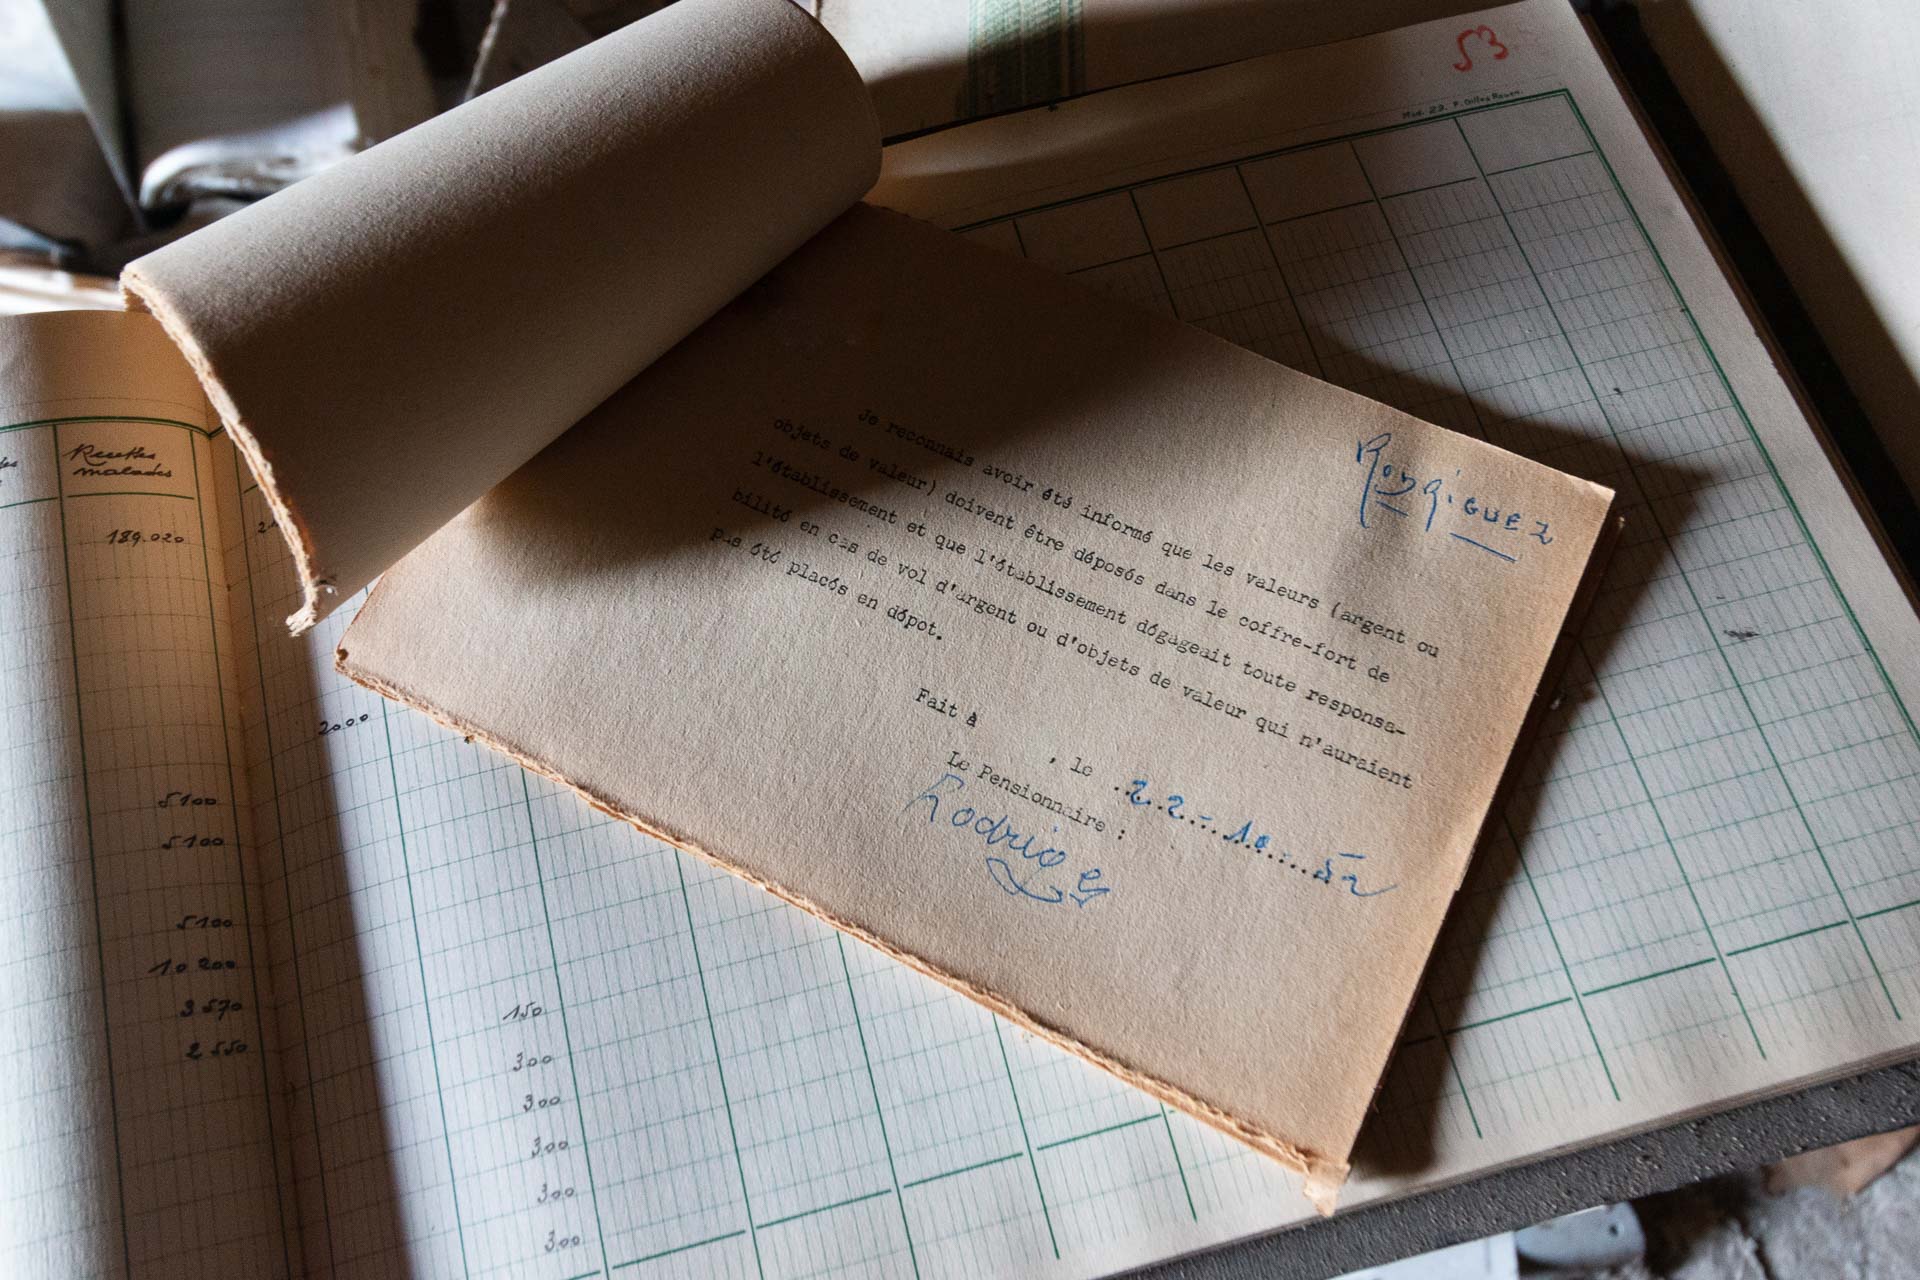 53
Mod. 29. P. Gilles Rouen.
Recettes
malades
189.020
2000
5100
5100
5100
10 200
3 570
2 550
150
300
300
300
300
300
RODRIGUEZ
Je reconnais avoir été informé que les valeurs (argent ou
objets de valeur) doivent être déposés dans le coffre-fort de
l'établissement et que l'établissement dégageait toute responsa-
bilité en cas de vol d'argent ou d'objets de valeur qui n'auraient
pas été placés en dépôt.
Fait à , le ..22..-..10....-..52
Le Pensionnaire :